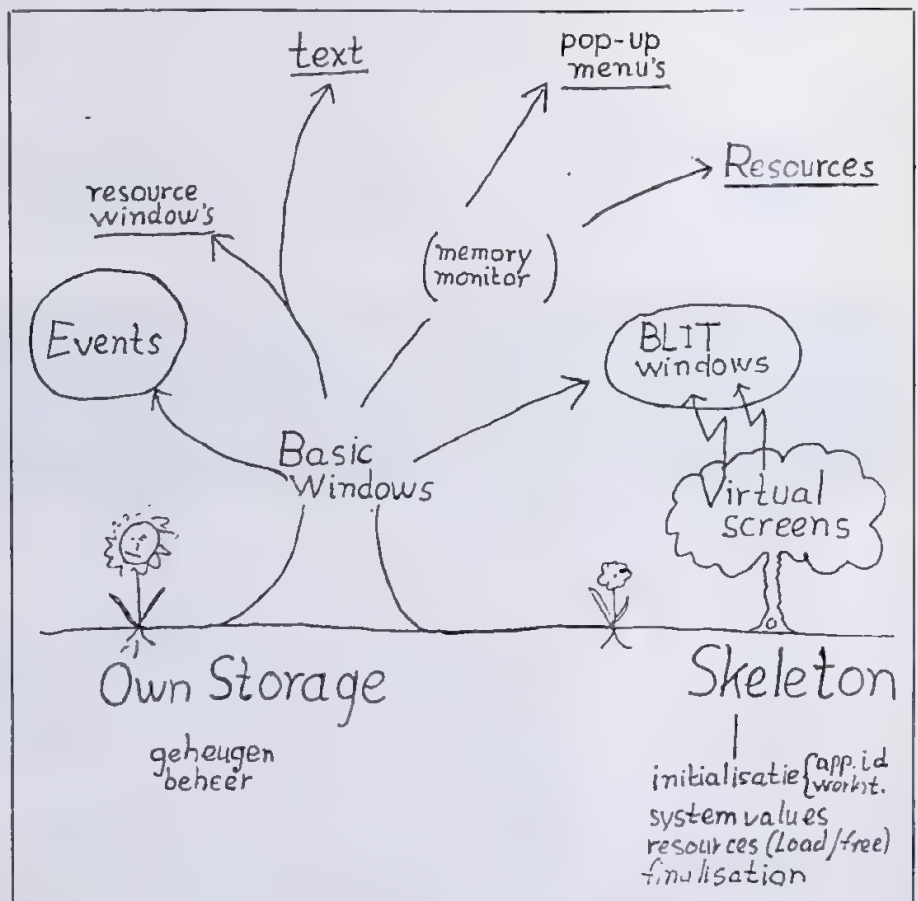 text
pop-up
menu's
Resources
resource
window's
(memory
monitor)
Events
BLIT
windows
Basic
Windows
Virtual
screens
Own Storage
geheugen
beheer
Skeleton
initialisatie {app.id
workst.
system values
resources (load/free)
finalisation